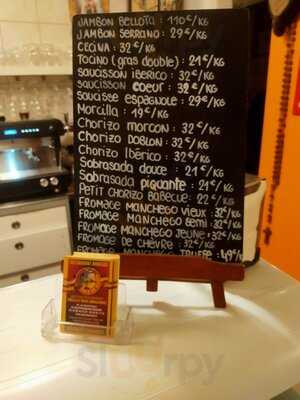 JAMBON BELLOTA : 110€/KG
JAMBON SERRANO : 29€/KG
CECINA : 32€/KG
Tocino (gras double) : 21€/KG
SAUCISSON IBERICO : 32€/KG
SAUCISSON COEUR : 32€/KG
SAUCISSE ESPAGNOLE : 29€/KG
Morcilla : 19€/KG
CHORIZO MORCON : 32€/KG
CHORIZO DOBLON : 32€/KG
CHORIZO IBÉRICO : 32€/KG
SOBRASADA DOUCE : 21€/KG
SOBRASADA PIQUANTE : 21€/KG
PETIT CHORIZO BARBECUE : 22€/KG
FROMAGE MANCHEGO VIEUX : 32€/KG
FROMAGE MANCHEGO SEMI : 32€/KG
FROMAGE MANCHEGO JEUNE : 32€/KG
FROMAGE DE CHÈVRE : 32€/KG
FROMAGE MANCHEGO TRUFFE : 49€/KG
Slurrpy